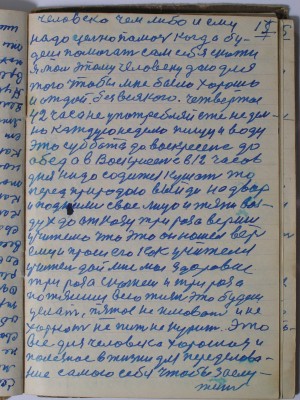 17
человека чем либо и ему
надо целно помоч когда бу-
деш помогат сам себя скажи
я том этому человеку даю для
того чтобы мне было хорошо
и отдай без всякого. четвертое
42 часа не употребляй ете недел-
но каждую неделю пищу и воду
Это субботта до воскресене до
обеда в Воскресене в 12 часов
дня надо содится Кушат
перед природою выйди на двор
и подними свое лицо и тяни воз-
дух до отказу три роза верши
учителю что это он нашел вер
ему и проси его как учителя
учител дай мне мое здоровье
три роза скажем и три роза
потянеши всего тела это будиш
кушат, пятое не плеват и не
харкат не пит не курит. Это
все для человека хорошое и
полезное в жизни для переделова-
ние самого себя чтобы заслу-
жит